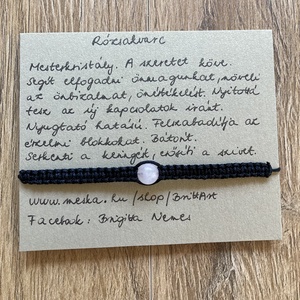 Rózsakvarc
Mesterkristály. A szeretet köve.
Segít elfogadni önmagunkat, növeli
az önbizalmat, önértékelést. Nyitottá
tesz az új kapcsolatok iránt.
Nyugtató hatású. Felszabadítja az
érzelmi blokkokat. Bátorít.
Serkenti a keringést, erősíti a szívet.
www.meska.hu/shop/BrittArt
Facebook: Brigitta Nemes